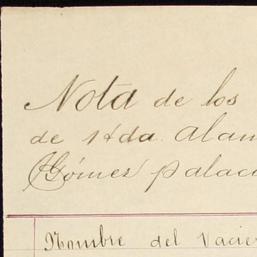 Nota de los
de Hda. Alam
Gómez Palac
Nombre del Vacie